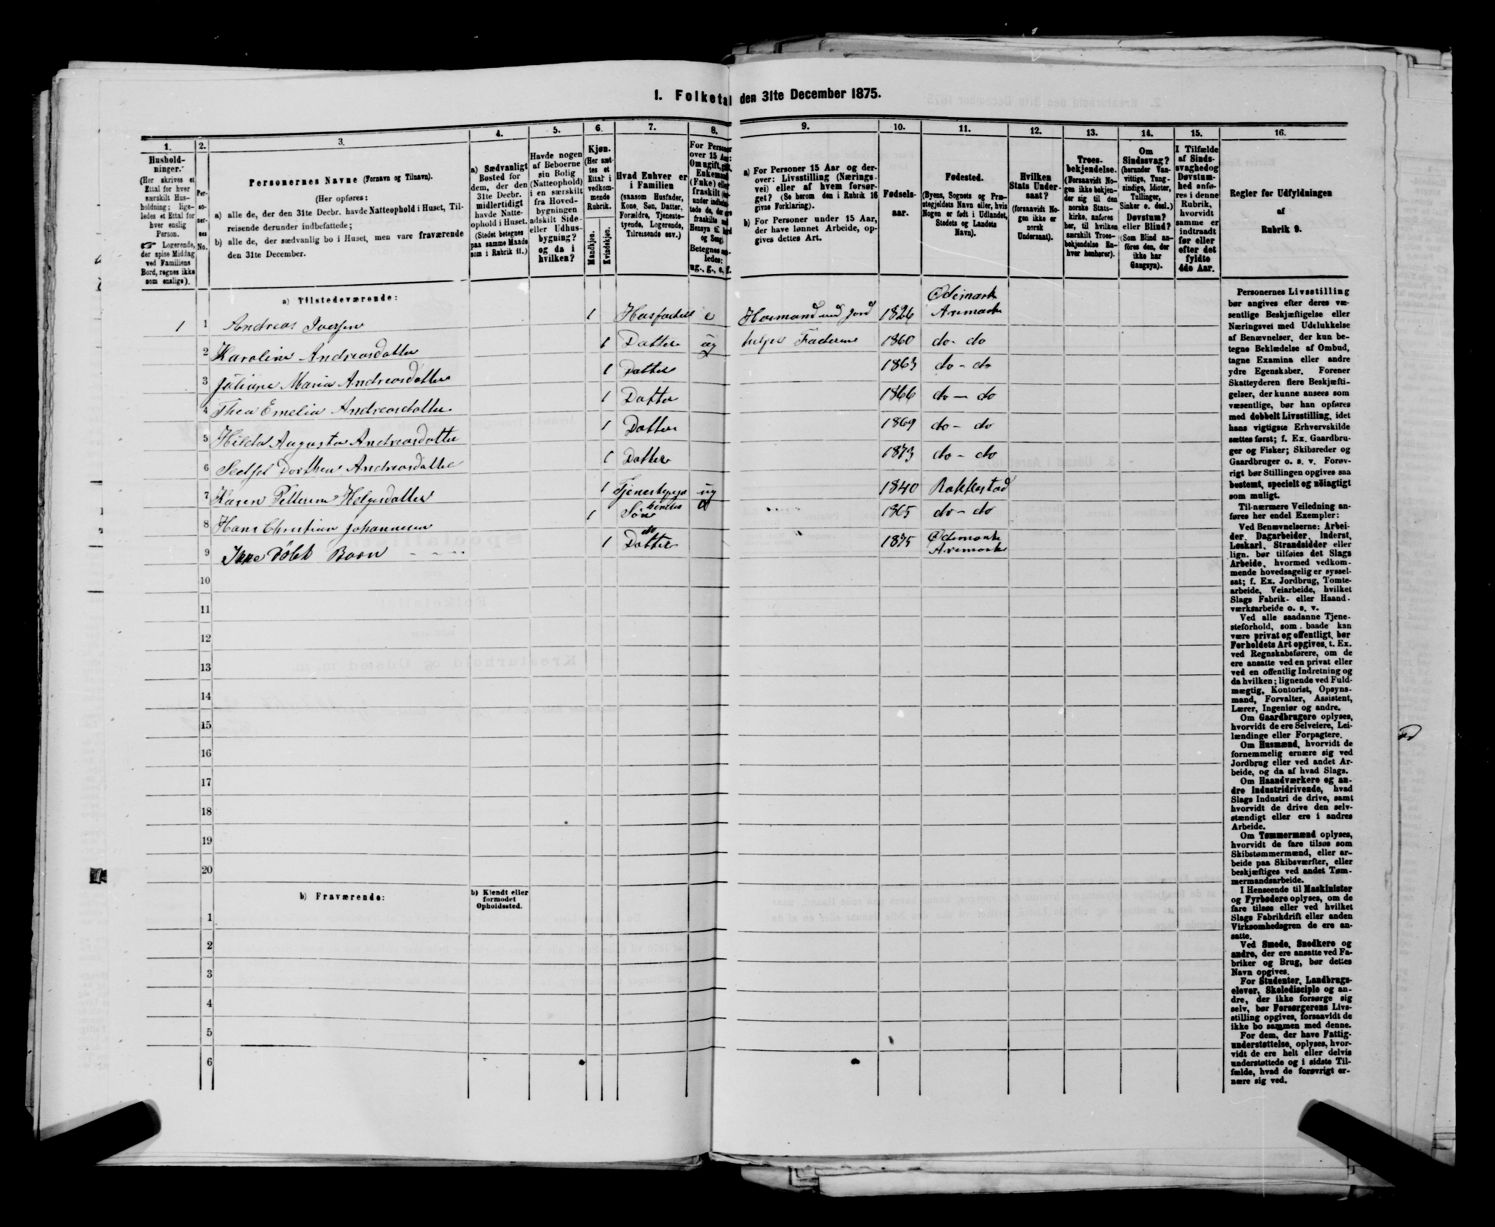 1. Folketal den 31te December 1875.
1.
Hushold-
ninger.
(Her skrives et
Ettal for hver
særskilt Hus-
holdning; lige-
ledes et Ettal for
hver enslig
Person.
☞ Logerende,
der spise Middag
ved Familiens
Bord, regnes ikke
som enslige).
2.
Per-
so-
ner-
nes
No.
3.
Personernes Navne (Fornavn og Tilnavn).
(Her opføres:
a) alle de, der den 31te Decbr. havde Natteophold i Huset, Til-
reisende derunder indbefattede;
b) alle de, der sædvanlig bo i Huset, men vare fraværende
den 31te December.
4.
a) Sædvanligt
Bosted for
dem, der den
31te Decbr.
midlertidigt
havde Natte-
ophold i Huset.
(Stedet betegnes
paa samme Maade
som i Rubrik 11.)
5.
Havde nogen
af Beboerne
sin Bolig
(Natteophold)
i en særskilt
fra Hoved-
bygningen
adskilt Side-
eller Udhus-
bygning?
og da i
hvilken?
6.
Kjøn.
(Her sæt-
tes et
Ettal i
vedkom-
mende
Rubrik.
Mandkjøn.
Kvindekjøn.
7.
Hvad Enhver er
i Familien
(saasom Husfader,
Kone, Søn, Datter,
Forældre, Tjeneste-
tyende, Logerende,
Tilreisende osv.)
8.
For Personer
over 15 Aar:
9.
a) For Personer 15 Aar og der-
over: Livsstilling (Nærings-
vei) eller af hvem forsør-
get? (Se herom den i Rubrik 16
givne Forklaring).
b) For Personer under 15 Aar,
der have lønnet Arbeide, op-
gives dettes Art.
10.
Fødsels-
aar.
11.
Fødested.
(Byens, Sognets og Præ-
stegjeldets Navn eller, hvis
Nogen er født i Udlandet,
Stedets og Landets
Navn).
12.
Hvilken
Stats Under-
saat?
(forsaavidt No-
gen ikke er
norsk
Undersaat).
13.
Troes-
bekjendelse.
(Forsaavidt No-
gen ikke bekjen-
der sig til den
norske Stats-
kirke, anføres
her, til hvilken
særskilt Troes-
bekjendelse En-
hver henhører).
14.
Om
Sindssvag?
(herunder Van-
vittige, Tung-
sindige, Idioter,
Tullinger,
Sinker o. desl.)
Døvstum?
eller Blind?
(Som Blind an-
føres den, der
ikke har
Gangsyn).
15.
I Tilfælde
af Sinds-
svaghed og
Døvstum-
hed anfø-
res i denne
Rubrik,
hvorvidt
samme er
indtraadt
før eller
efter det
fyldte
4de Aar.
16.
Regler for Udfyldningen
af
Rubrik 9.
a) Tilstedeværende:
1 1 Andreas Iversen 1 Husfader e Husmand med Jord 1826 Ødemark Aremark
2 Karoline Andreasdatter 1 Datter ug helper Faderen 1860 do - do
3 Juliane Maria Andreasdatter 1 Datter 1863 do - do
4 Thea Emelia Andreasdatter 1 Datter 1866 do - do
5 Hilda Augusta Andreasdatter 1 Datter 1869 do - do
6 Dorthea Andreasdatter 1 Datter 1873 do - do
7 Karen Petterine Helgesdatter 1 Tjenestepige ug 1840 Rakkestad
8 Hans Christian Johannesen 1 Søn 1865 do - do
9 Ikke Døbt Barn 1 Datter 1875 Ødemark Aremark
10
11
12
13
14
15
16
17
18
19
20
b) Fraværende:
b) Kjendt eller
formodet
Opholdssted.
1
2
3
4
5
6
Personernes Livsstilling
bør angives efter deres væ-
sentlige Beskjæftigelse eller
Næringsvei med Udelukkelse
af Benævnelser, der kun be-
tegne Beklædelse af Ombud,
tagne Examina eller andre
ydre Egenskaber. Forener
Skatteyderen flere Beskjæfti-
gelser, der kunne ansees som
væsentlige, bør han opføres
med dobbelt Livsstilling, idet
hans vigtigste Erhvervskilde
sættes først; f. Ex. Gaardbru-
ger og Fisker; Skibsreder og
Gaardbruger o. s. v. Forøv-
rigt bør Stillingen opgives saa
bestemt, specielt og nøiagtigt
som muligt.
Til nærmere Veiledning an-
føres her endel Exempler:
Ved Benævnelserne: Arbei-
der, Dagarbeider, Inderst,
Løskarl, Strandsidder eller
lign. bør tilføies det Slags
Arbeide, hvormed vedkom-
mende hovedsagelig er syssel-
sat; f. Ex. Jordbrug, Tomte-
arbeide, Veiarbeide, hvilket
Slags Fabrik- eller Haand-
værksarbeide o. s. v.
Ved alle saadanne Tjene-
steforhold, som baade kan
være privat og offentligt, bør
Forholdets Art opgives, t. Ex.
ved Regnskabsførere, om de
ere ansatte ved en privat eller
ved en offentlig Indretning og
da hvilken; lignende ved Fuld-
mægtig, Kontorist, Opsyns-
mand, Forvalter, Assistent,
Lærer, Ingeniør og andre.
Om Gaardbrugere oplyses,
hvorvidt de ere Selveiere, Lei-
lændinge eller Forpagtere.
Om Husmænd, hvorvidt de
fornemmelig ernære sig ved
Jordbrug eller ved andet Ar-
beide, og da af hvad Slags.
Om Haandværkere og an-
dre Industridrivende, hvad
Slags Industri de drive, samt
hvorvidt de drive den selv-
stændigt eller ere i andres
Arbeide.
Om Tømmermænd oplyses,
hvorvidt de fare tilsøs som
Skibstømmermænd, eller ar-
beide paa Skibsværfter, eller
beskjæftiges ved andet Tøm-
mermandsarbeide.
I Henseende til Maskinister
og Fyrbødere oplyses, om de
fare tilsøs eller ved hvilket
Slags Fabrikdrift eller anden
Virksomhedsgren de ere an-
satte.
Ved Smede, Snedkere og
andre, der ere ansatte ved Fa-
briker og Brug, bør dettes
Navn opgives.
For Studenter, Landbrugs-
elever, Skoledisciple og an-
dre, der ikke forsørge sig
selv, bør Forsørgerens Livs-
stilling opgives, forsaavidt de
ikke bo sammen med denne.
For dem, der have Fattig-
understøttelse, oplyses, hvor-
vidt de ere helt eller delvis
understøttede og i sidste Til-
fælde, hvad de forøvrigt er-
nære sig ved.